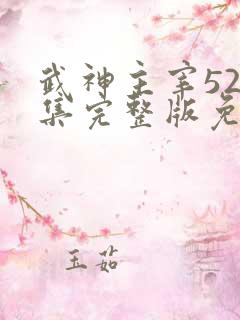 武神主宰52
集完整版免
玉茹